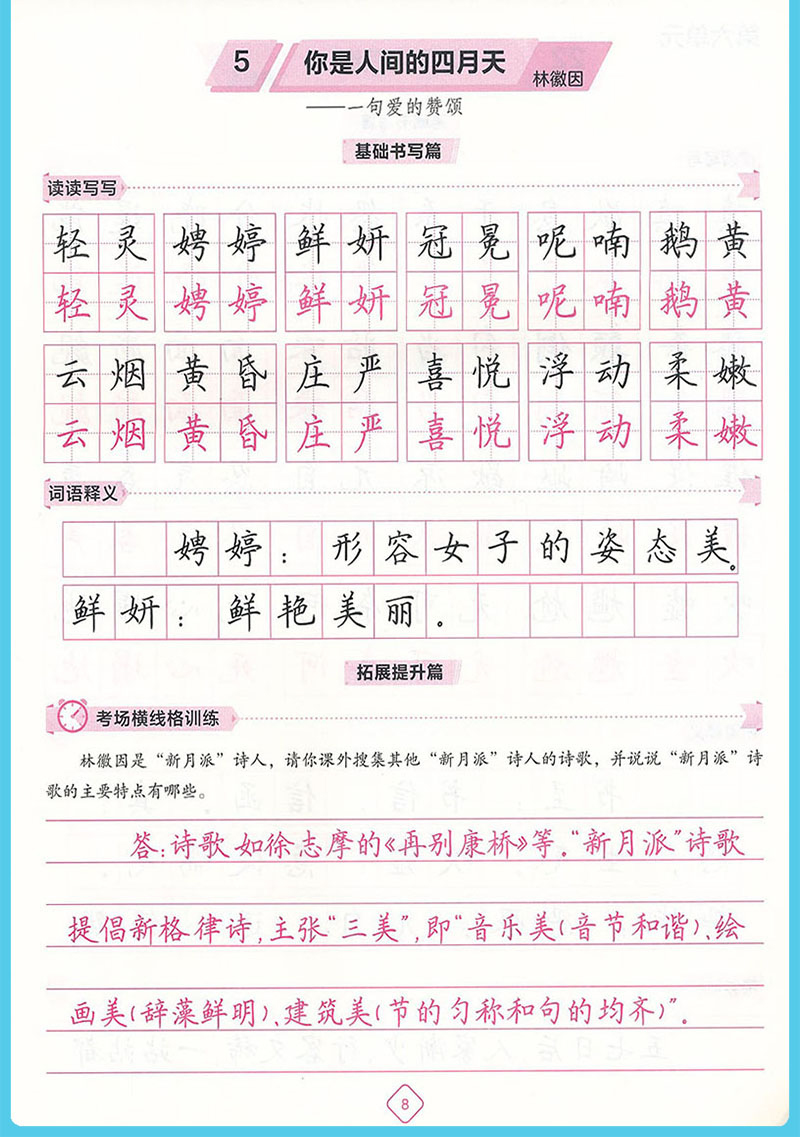 5 你是人间的四月天 林徽因
——一句爱的赞颂
基础书写篇
读读写写
轻灵 娉婷 鲜妍 冠冕 呢喃 鹅黄
轻灵 娉婷 鲜妍 冠冕 呢喃 鹅黄
云烟 黄昏 庄严 喜悦 浮动 柔嫩
云烟 黄昏 庄严 喜悦 浮动 柔嫩
词语释义
娉婷：形容女子的姿态美。
鲜妍：鲜艳美丽。
拓展提升篇
考场横线格训练
林徽因是“新月派”诗人，请你课外搜集其他“新月派”诗人的诗歌，并说说“新月派”诗
歌的主要特点有哪些。
答：诗歌如徐志摩的《再别康桥》等。“新月派”诗歌
提倡新格律诗，主张“三美”，即“音乐美（音节和谐）、绘
画美（辞藻鲜明）、建筑美（节的匀称和句的均齐）”。
8